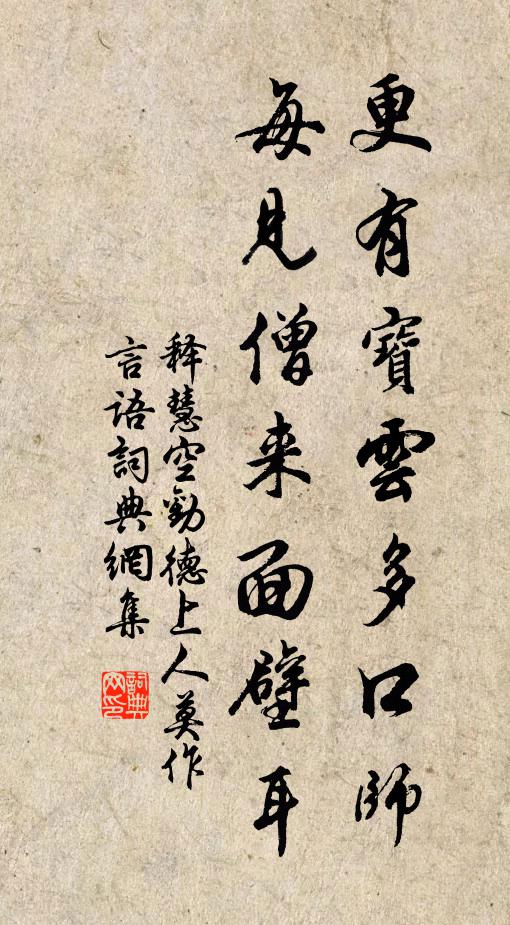 更有寶雲多口師
每見僧来面壁耳
释慧空勸德上人莫作
言语詞典網集
詞典网印